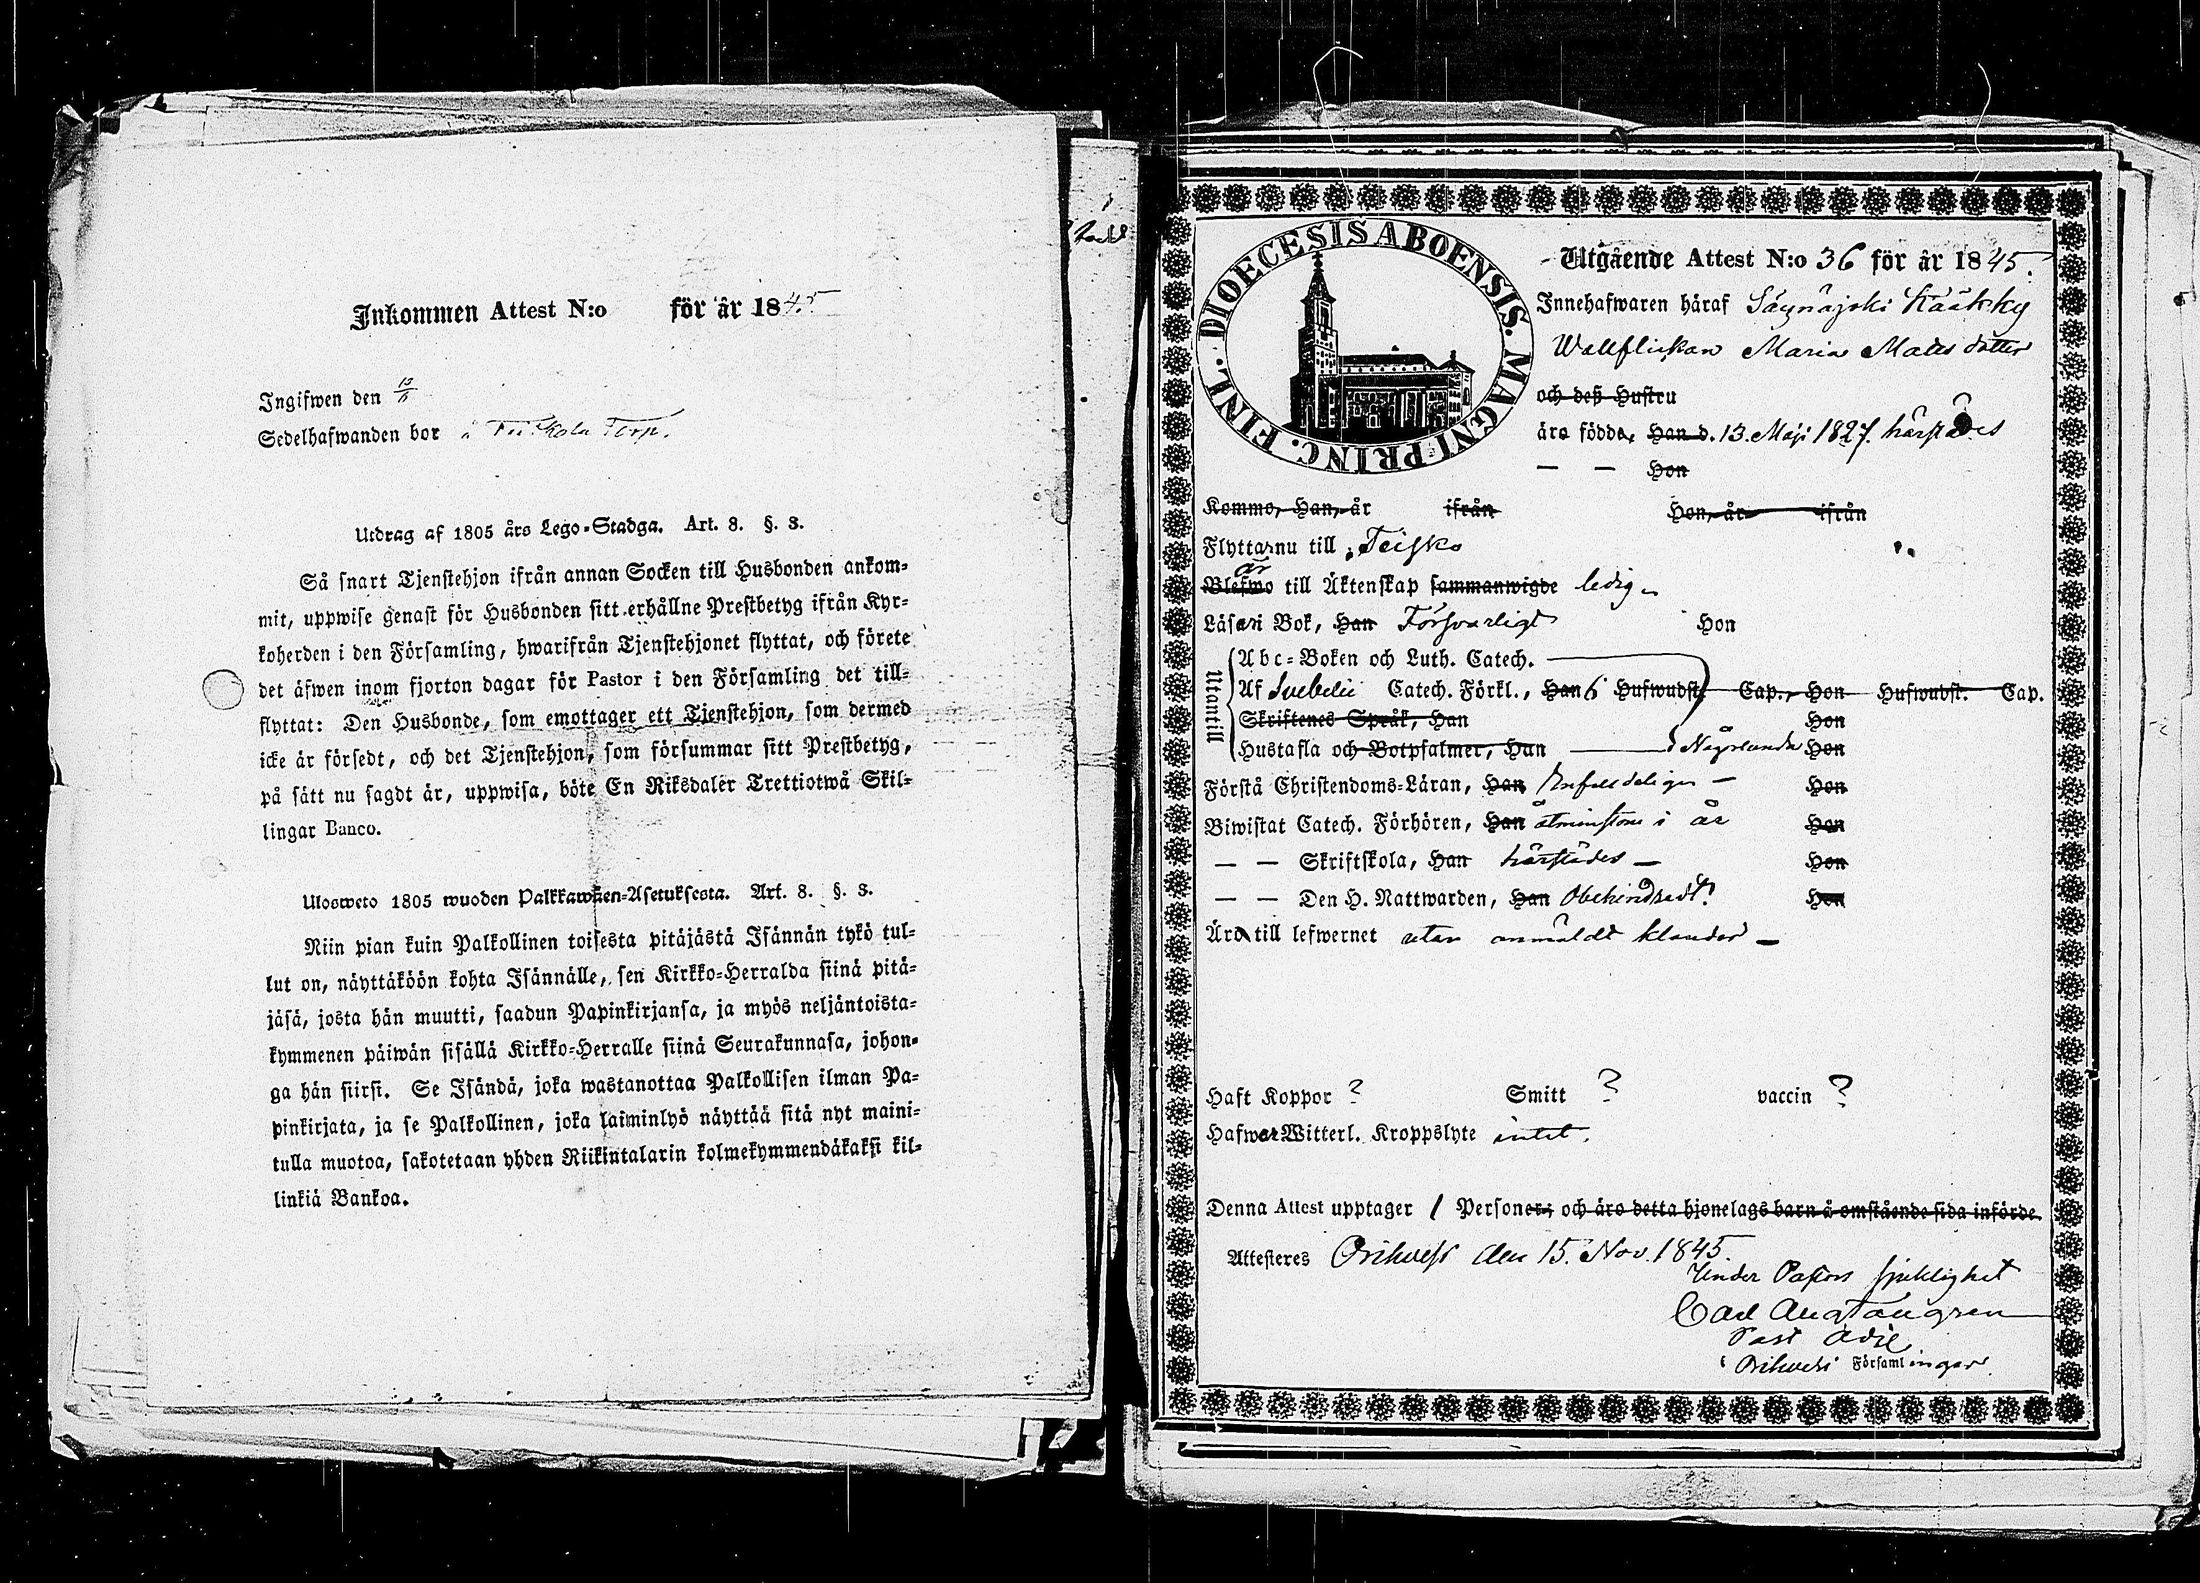 Inkommen Attest N:o för år 1845
Ingifwen den
Sedelhafwanden bor å Torp.
Utdrag af 1805 års Lego-Stadga. Art. 8. §. 3.
Så snart Tjenstehjon ifrån annan Socken till Husbonden ankom-
mit, uppwise genast för Husbonden sitt erhållne Prestbetyg ifrån Kyr-
koherden i den Församling, hwarifrån Tjenstehjonet flyttat, och förete
det äfwen inom fjorton dagar för Pastor i den Församling det till-
flyttat: Den Husbonde, som emottager ett Tjenstehjon, som dermed
icke är försedt, och det Tjenstehjon, som försummar sitt Prestbetyg,
på sätt nu sagdt är, uppwisa, böte En Riksdaler Trettiotwå Skil-
lingar Banco.
Ulosweto 1805 wuoden Palkkawäen-Asetuksesta. Art. 8. §. 3.
Niin pian kuin Palkollinen toisesta pitäjästä Isännän tykö tul-
lut on, näyttäköön kohta Isännälle, sen Kirkko-Herralda siinä pitä-
jäsä, josta hän muutti, saadun Papinkirjansa, ja myös neljäntoista-
kymmenen päiwän sisällä Kirkko-Herralle siinä Seurakunnasa, johon-
ga hän siirsi. Se Isändä, joka wastanottaa Palkollisen ilman Pa-
pinkirjata, ja se Palkollinen, joka laiminlyö näyttää sitä nyt maini-
tulla muotoa, sakotetaan yhden Riikintalarin kolmekymmendäkaksi kil-
linkiä Bankoa.
DIOECESIS ABOENSIS. MAGNI PRINC. FINL.
Utgående Attest N:o 36 för år 1845.
Innehafwaren häraf Säynäjoki Kääkky
Wallflickan Maria Mats dotter
och deß Hustru
äro födde, Han d. 13. Maji 1827. härstädes
— — Hon
Kommo, Han, år ifrån Hon, år ifrån
Flyttar nu till Teisko
är
Blefwo till Äktenskap sammanwigde ledig
Läser i Bok, Han Försvarligt Hon
Utantill
Abc-Boken och Luth. Catech.
Af Svebelii Catech. Förkl., Han 6 Hufwudst. Cap., Hon Hufwudst. Cap.
Skriftenes Språk, Han Hon
Hustafla och Botpsalmer, Han Någorlunda Hon
Förstå Christendoms-Läran, Han Enfaldeligen — Hon
Biwistat Catech. Förhören, Han åtminstone i år Hon
— — Skriftskola, Han härstädes — Hon
— — Den H. Nattwarden, Han Obehindradt. Hon
Äro till lefwernet utan anmäldt klander —
Haft Koppor ? Smitt ? vaccin ?
Hafwer Witterl. Kroppslyte intet.
Denna Attest upptager 1 Personer; och äro detta hjonelags barn å omstående sida införde.
Attesteres Orihvesi den 15. Nov. 1845.
Under Pastors sjuklighet
Carl Aug Tangren
Past Adj
i Orihvesi Församlingar.